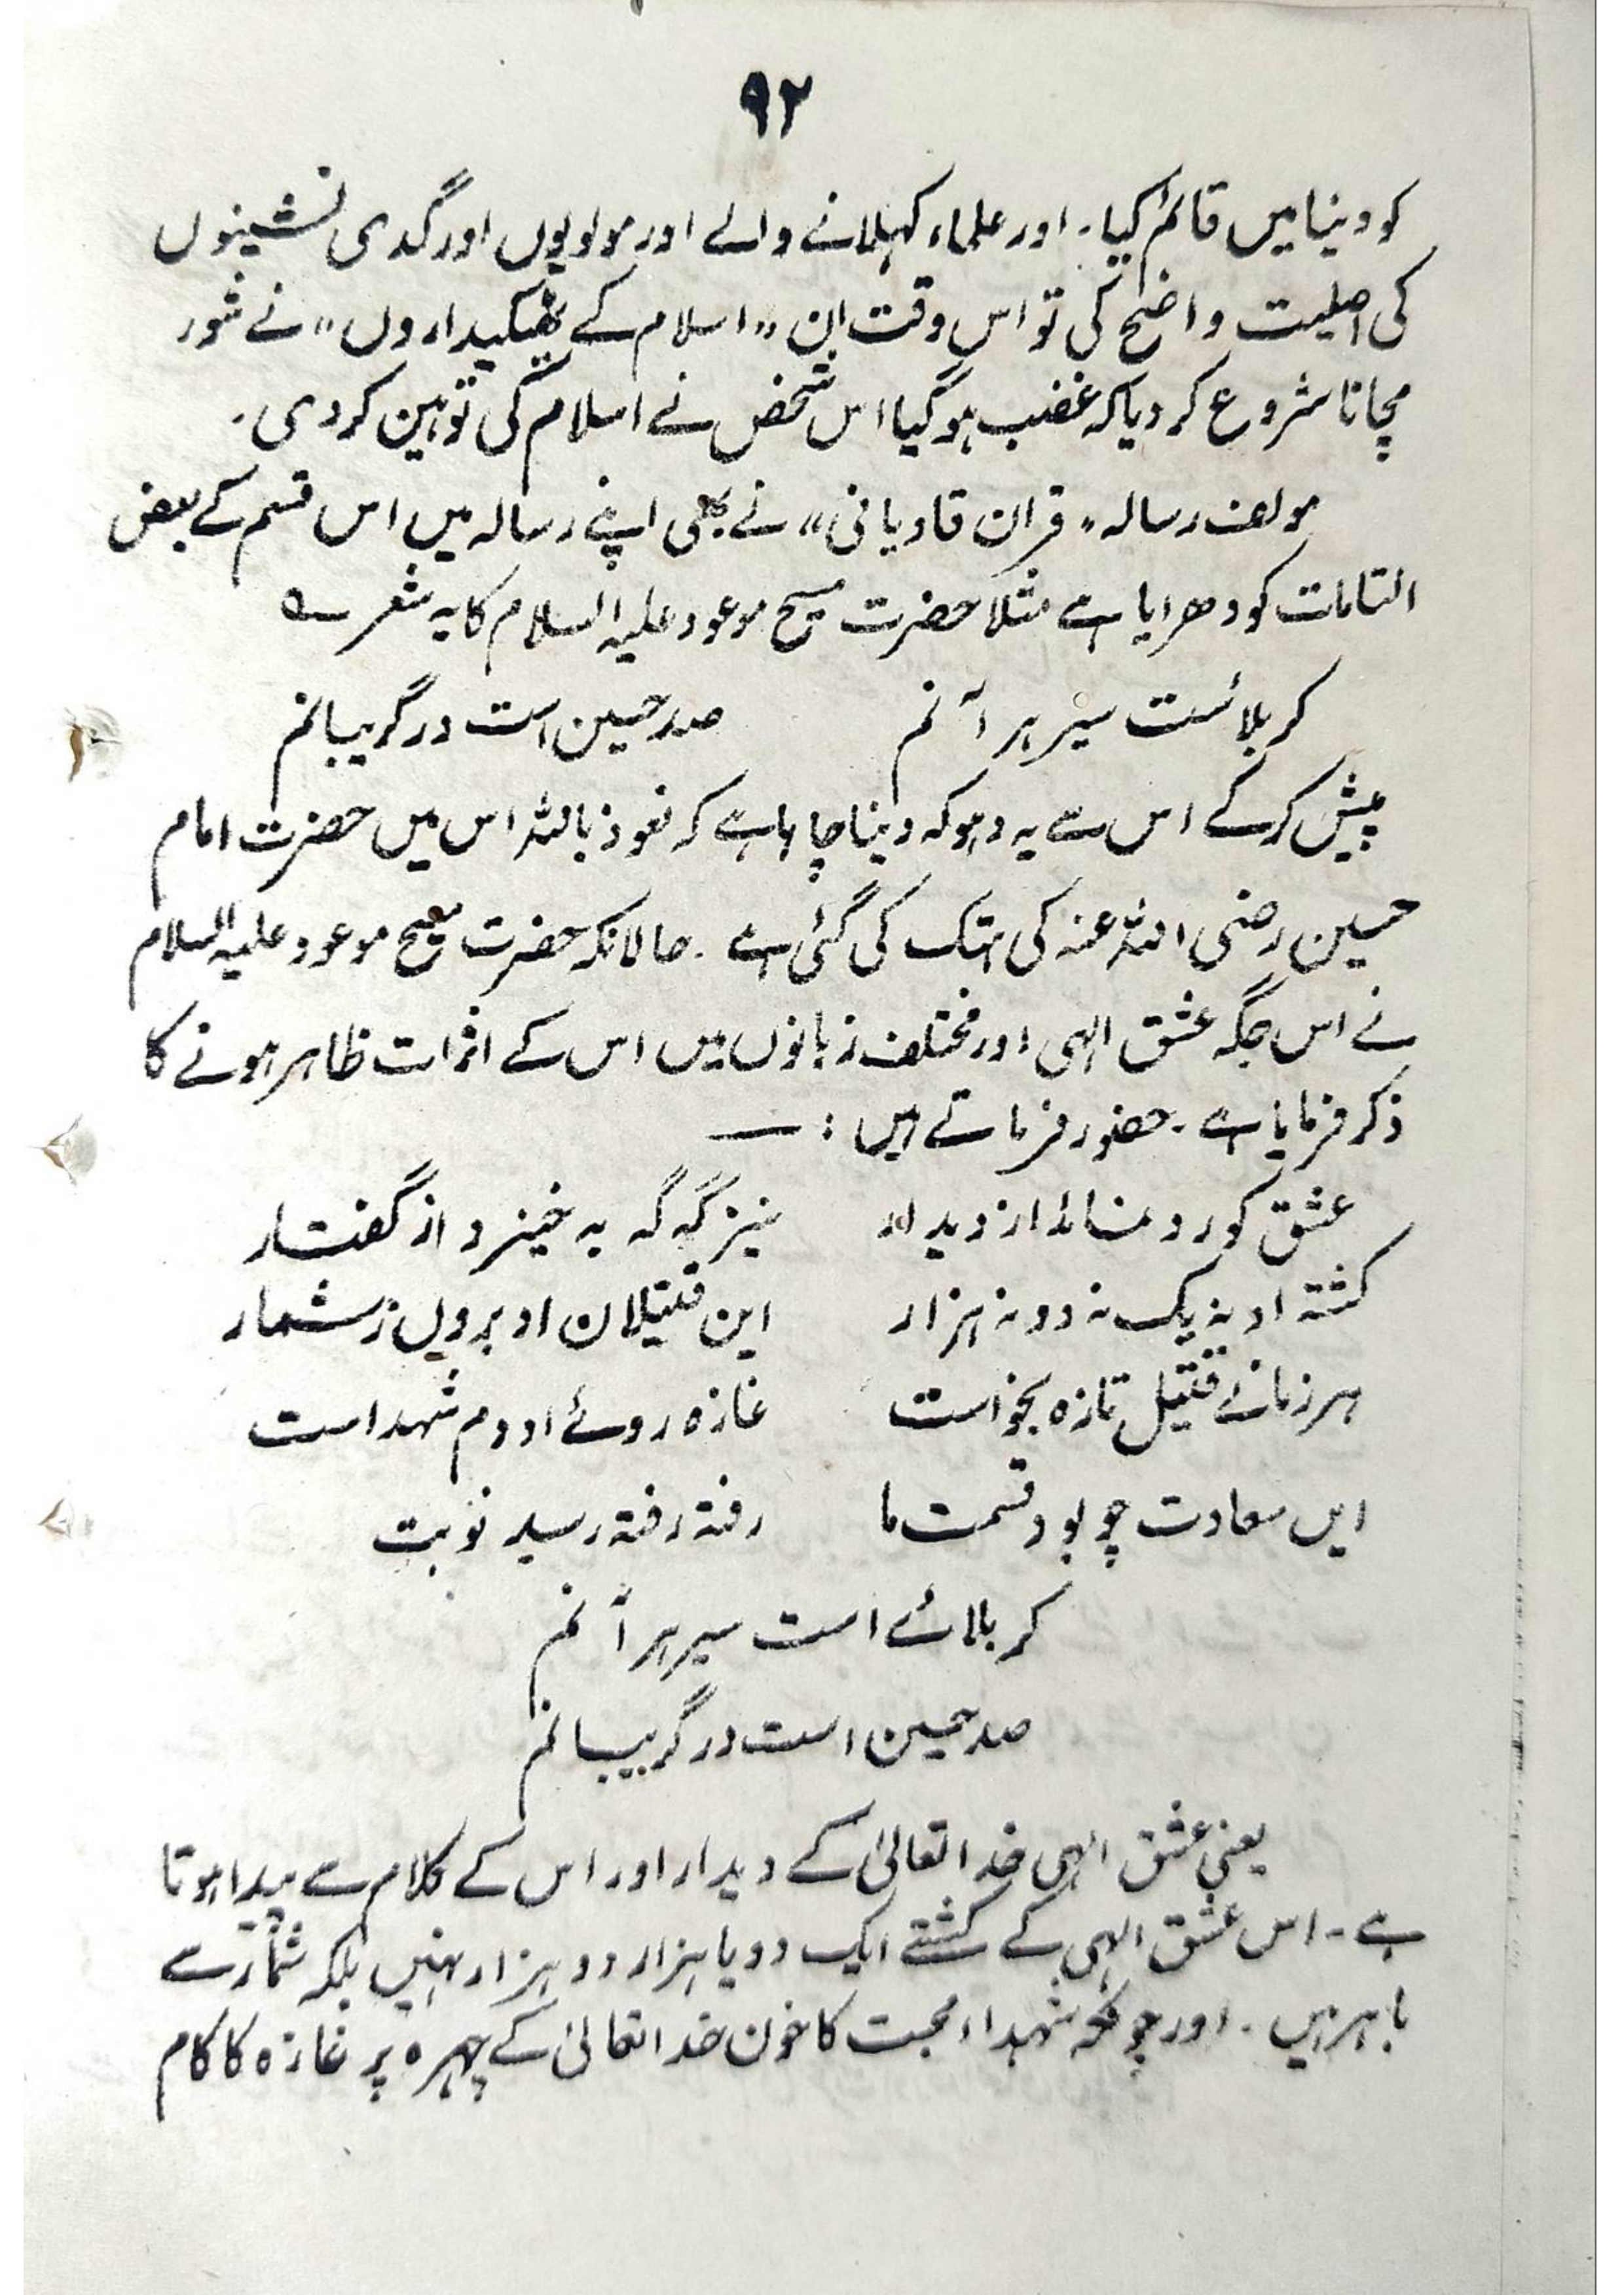 ۹۲
کو دینا میں قائم کیا۔ اور علماء کہلانے والے اور مولویوں اور گدی نشینوں
کی اصلیت واضح کی تو اس وقت ان "اسلام کے ٹھیکیداروں" نے شور
مچانا شروع کر دیا کہ غضب ہو گیا اس شخص نے اسلام کی توہین کر دی۔
مولف رسالہ "قران قادیانی" نے بھی اپنے رسالہ میں اس قسم کے بعض
اتہامات کو دھرایا ہے مثلاً حضرت مسیح موعود علیہ السلام کا یہ شعر ؎
کربلا ئست سیر ہر آنم صد حسین است در گریبانم
پیش کر کے اس سے یہ دہوکہ دینا چاہا ہے کہ نعوذ باللہ اس میں حضرت امام
حسین رضی اللہ عنہ کی ہتک کی گئی ہے۔ حالانکہ حضرت مسیح موعود علیہ السلام
نے اس جگہ عشق الہی اور مختلف زبانوں میں اس کے اثرات ظاہر ہونے کا
ذکر فرمایا ہے۔ حضور فرماتے ہیں :—
عشق کو رو نمائد از دیدار نیز گہ گہ بہ خیزد از گفتار
کشتہ او نہ یک نہ دو نہ ہزار این قتیلان او بروں ز شمار
ہر زمانے قتیل تازہ بخواست غازہ روئے او دم شہداست
ایں سعادت چو بود قسمت ما رفتہ رفتہ رسید نوبت
کربلائے است سیر ہر آنم
صد حسین است در گریبانم
یعنی عشق الہی خدا تعالیٰ کے دیدار اور اس کے کلام سے پیدا ہوتا
ہے۔ اس عشق الہی کے کشتے ایک دو یا ہزار دو ہزار نہیں بلکہ شمار سے
باہر ہیں۔ اور چونکہ شہداء محبت کا خون خدا تعالیٰ کے چہرہ پر غازہ کا کام